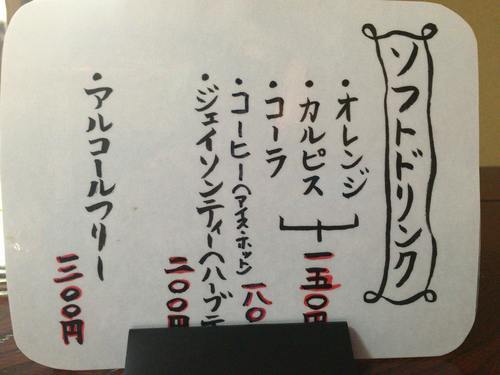 ソフトドリンク
・オレンジ
・カルピス
・コーラ
一五〇円
・コーヒー(アイス・ホット)
一八〇
・ジェイソンティー(ハーブテ
二〇〇円
・アルコールフリー
三〇〇円